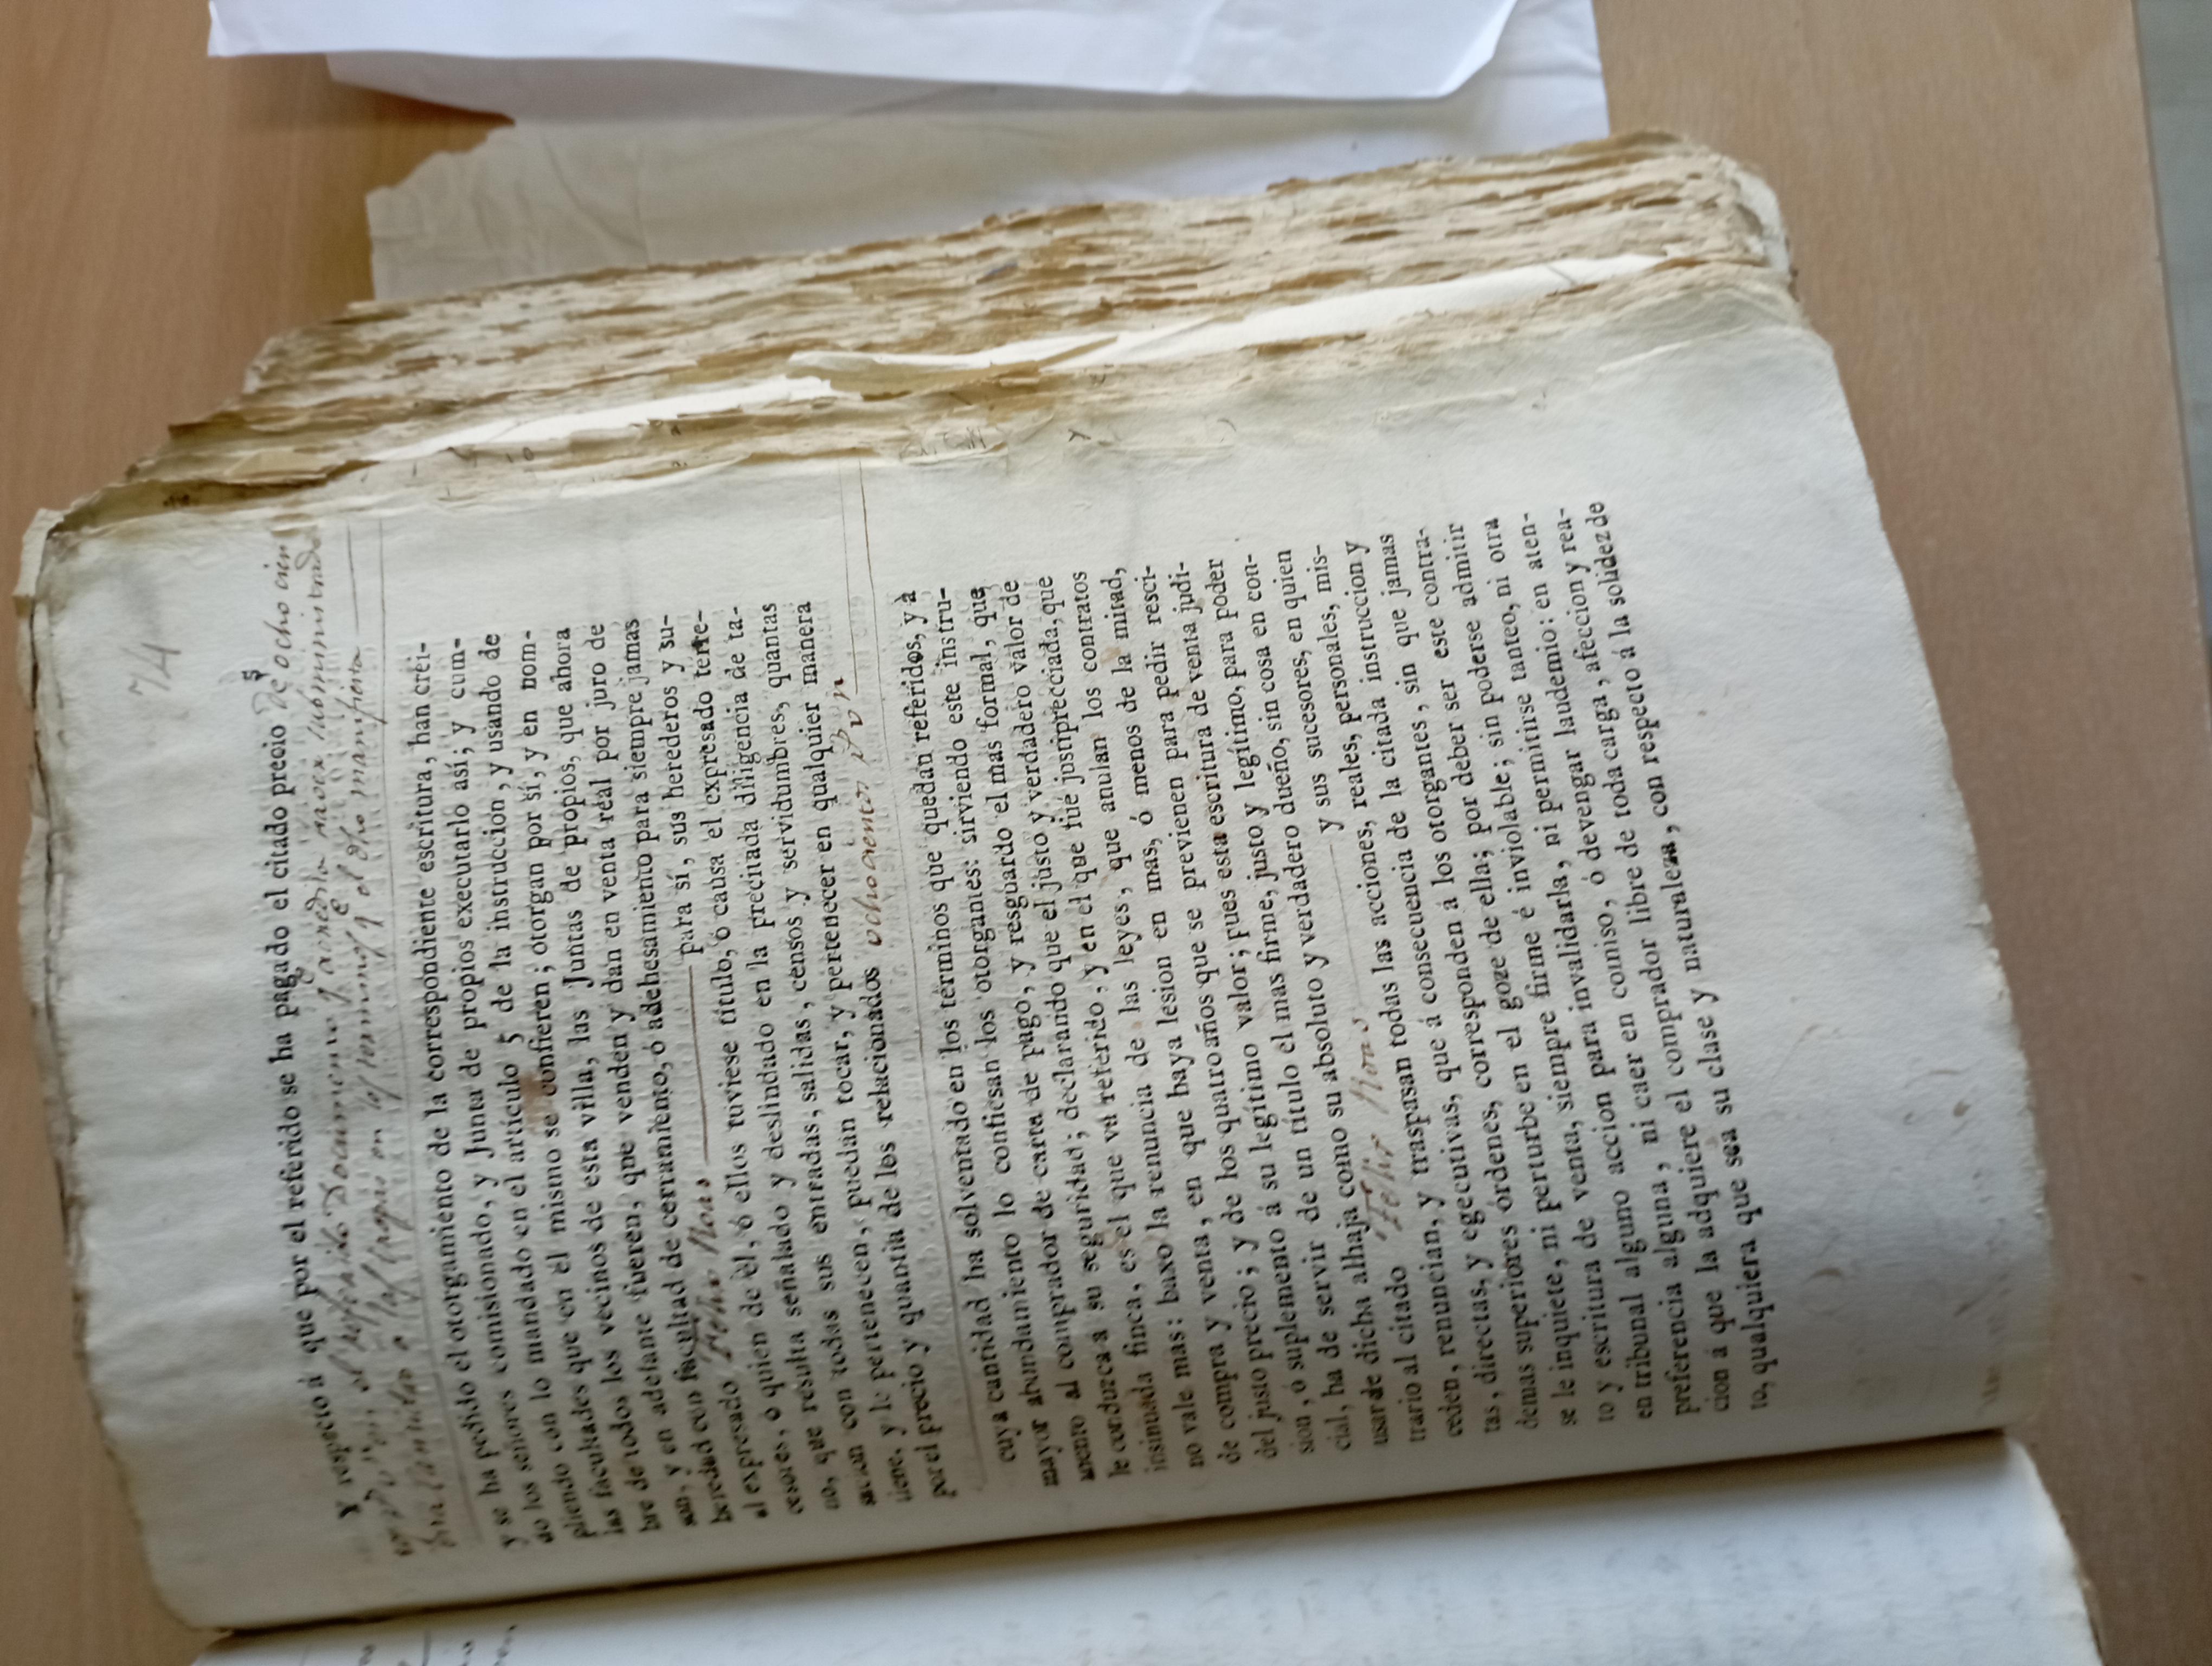 74
5
Y respecto á que por el referido se ha pagado el citado precio de ocho cien
tos rs vn en el referido Documento qe acredita haver subministrado
dha Cantidad a las tropas en los terminos qe el dho manifiesta
y se ha pedido el otorgamiento de la correspondiente escritura, han crei-
do los señores comisionado, y Junta de propios executarlo así; y cum-
pliendo con lo mandado en el artículo 5 de la instruccion, y usando de
las facultades que en él mismo se confieren; otorgan por sí, y en nom-
bre de todos los vecinos de esta villa, las Juntas de propios, que ahora
son, y en adelante fueren, qne venden y dan en venta real por juro de
heredad con facultad de cerramiento, ó adehesamiento para siempre jamas
al expresado Felix Roas para sí, sus herederos y su-
cesores, ó quien de él, ó ellos tuviese título, ó causa el expresado terre-
no, que resulta señalado y deslindado en la precitada diligencia de ta-
sacion con todas sus entradas, salidas, censos y servidumbres, quantas
tiene, y le pertenecen, puedan tocar, y pertenecer en qualquier manera
por el precio y quantia de los relacionados ochocientos rs vn
cuya cantidad ha solventado en los términos que quedan referidos, y à
mayor abundamiento lo confiesan los otorgantes: sirviendo este instru-
mento al comprador de carta de pago, y resguardo el mas formal, que
le conduzca á su seguridad; declarando que el justo y verdadero valor de
insinuada finca, es el que va referido, y en el que fué justiprecciada, que
no vale mas: baxo la renuncia de las leyes, que anulan los contratos
de compra y venta, en que haya lesion en mas, ó menos de la mitad,
del justo precio; y de los quatro años que se previenen para pedir resci-
sion, ó suplemento á su legítimo valor; pues esta escritura de venta judi-
cial, ha de servir de un título el mas firme, justo y legítimo, para poder
usar de dicha alhaja como su absoluto y verdadero dueño, sin cosa en con-
trario al citado Felix Roas y sus sucesores, en quien
ceden, renuncian, y traspasan todas las acciones, reales, personales, mis-
tas, directas, y egecutivas, que á consecuencia de la citada instruccion y
demas superiores órdenes, corresponden á los otorgantes, sin que jamas
se le inquiete, ni perturbe en el goze de ella; por deber ser este contra-
to y escritura de venta, siempre firme é inviolable; sin poderse admitir
en tribunal alguno accion para invalidarla, ni permitirse tanteo, ni otra
preferencia alguna, ni caer en comiso, ó devengar laudemio: en aten-
cion á que la adquiere el comprador libre de toda carga, afeccion y rea-
to, qualquiera que sea su clase y naturaleza, con respecto á la solidez de